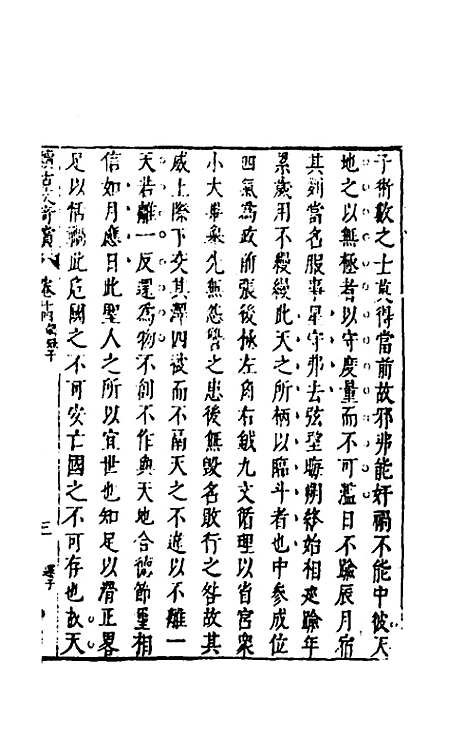 子術數之士莫得當前故邪弗能奸禍不能中彼天
地之以無極者以守度量而不可濫日不踰辰月宿
其列當名服事星守弗去弦望晦朔終始相巡踰年
累歲用不縵縵此天之所柄以臨斗者也中參成位
四氣為政前張後極左角右鉞九文循理以省宮衆
小大畢舉先無怨讐之患後無毀名敗行之咎故其
威上際下交其澤四被而不鬲天之不違以不離一
天若離一反還為物不創不作與天地合德節璽相
信如月應日此聖人之所以宜世也知足以滑正畧
足以恬禍此危國之不可安亡國之不可存也故天
續古文奇賞 卷十四 鶡冠子 三 選子